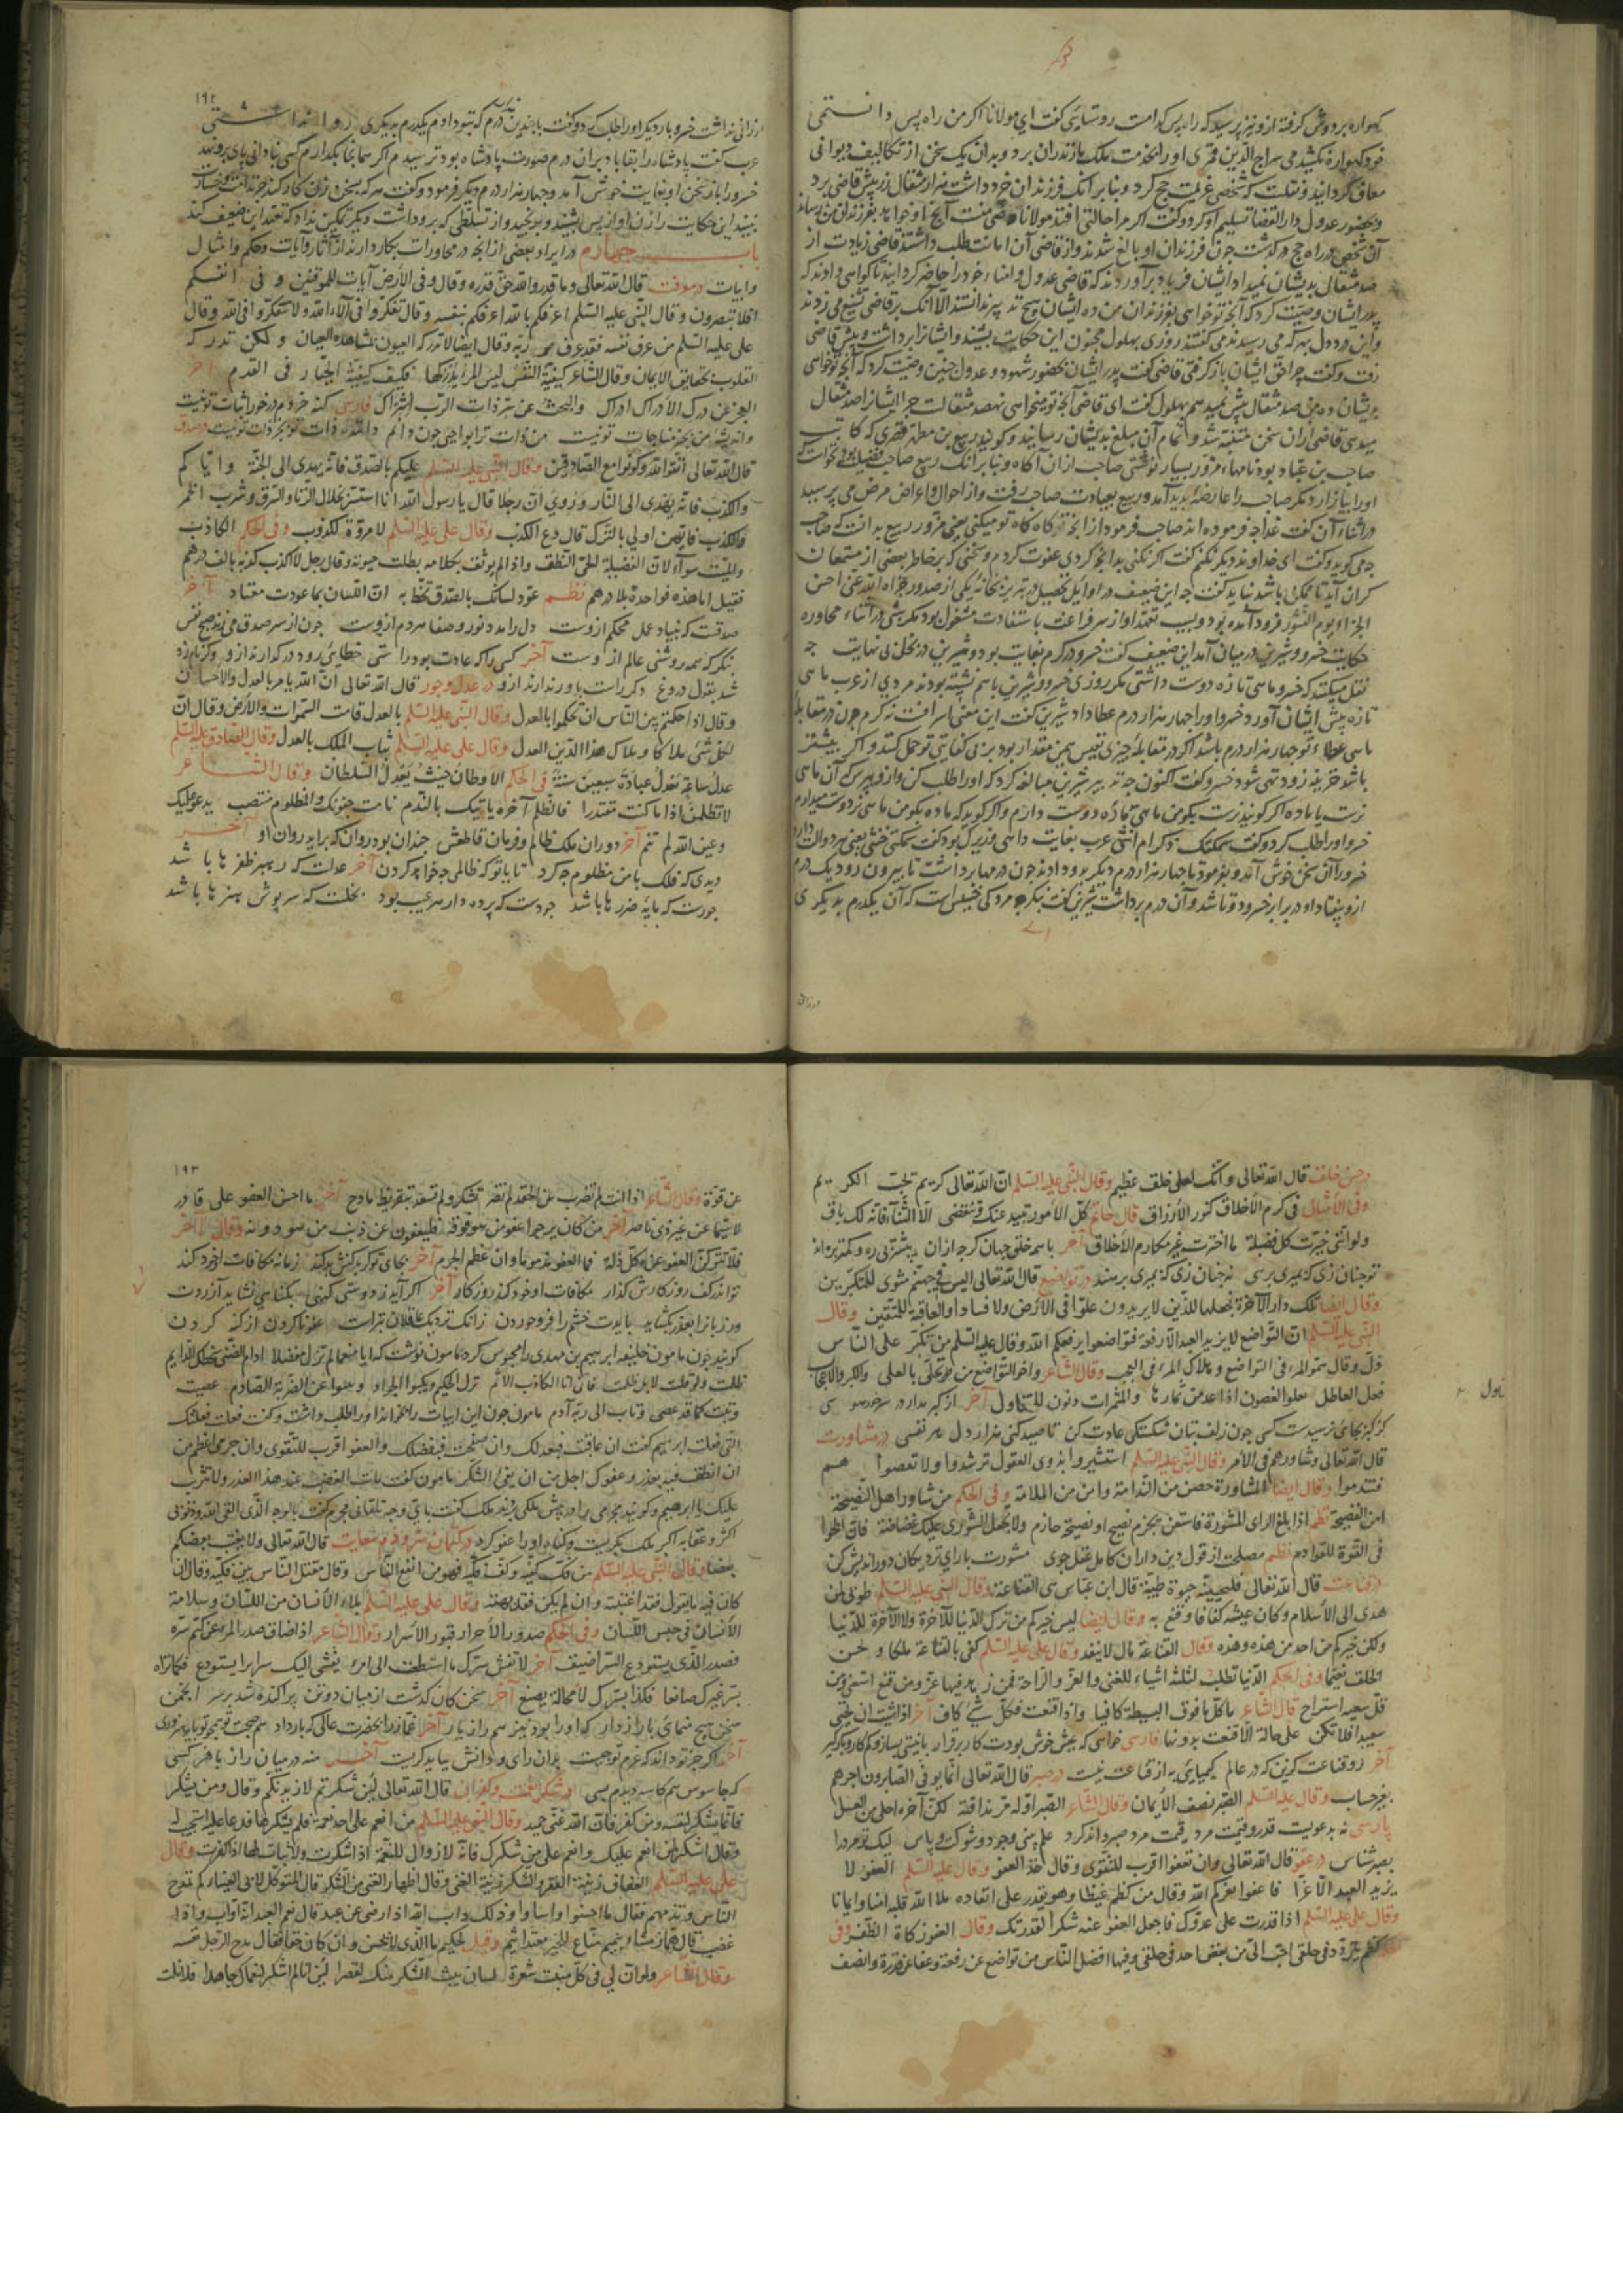 کهواره بر دوش گرفته ازو نیز پرسید که راه پس کدامست روستایی گفت ای مولانا اگر من راه پس دانستمی
خود کهواره نکشیدمی سراج الدین قمری او را بخدمت ملک مازندران برد و بدان یک سخن از تکالیف دیوانی
معاف گردانید و نقلست که شخصی عزیمت حج کرد و بنابر آنک فرزندان خرد داشت هزار مثقال زر پیش قاضی برد
و بحضور عدول دار القضا تسلیم او کرد و گفت اگر مرا حالتی افتد مولانا وصی منست آنچ او خواهد بفرزندان من رساند
آن شخص در راه حج درگذشت چون فرزندان او بالغ شدند و از قاضی آن امانت طلب داشتند قاضی زیادت از
صد مثقال بدیشان نمیداد ایشان فریاد برآوردند که قاضی عدول و امناء خود را حاضر گردانید تا گواهی دادند که
پدر ایشان وصیت کرد که آنچ تو خواهی بفرزندان من ده ایشان هیچ تدبیر ندانستند الا آنک بر قاضی تشنیع می زدند
و این درد دل بهر که می رسیدند می گفتند روزی بهلول مجنون این حکایت بشنید و ایشانرا برداشت و پیش قاضی
رفت و گفت چرا حق ایشان باز گرفتی قاضی گفت پدر ایشان بحضور شهود و عدول چنین وصیت کرد که آنچ تو خواهی
بدیشان ده من صد مثقال بیش نمیدهم بهلول گفت ای قاضی آنچ تو میخواهی نهصد مثقالست چرا ایشانرا صد مثقال
میدهی قاضی از آن سخن متنبه شد و تمام آن مبلغ بدیشان رسانید و گویند ربیع بن مطهر قصری که کاتب
صاحب بن عباد بود نامهاء مزور بسیار نوشتی صاحب از آن آگاه و بنابر آنک ربیع صاحب فضیلت بود نخواست که
او را بیازارد مگر صاحب را عارضه پدید آمد و ربیع بعیادت صاحب رفت و از احوال و اعراض مرض می پرسید
در اثناء آن گفت غذا چه فرموده اند صاحب فرمود از آنچ تو گاه گاه میکنی یعنی مزور ربیع بدانست که صاحب
چه می گوید و گفت ای خداوند دیگر نکنم گفت اگر نکنی بدانچ کردی عفوت کردم و سخنی که بر خاطر بعضی از مستمعان
گران آید تا ممکن باشد نباید گفت چه این ضعیف در اوایل تحصیل در تبریز بخانه یکی از صدور جزاه الله عنی احسن
الجزاء یوم النشور فرود آمده بود و بسبب تعهد او از سر فراغت باستفادت مشغول بود مگر شبی در اثناء محاوره
حکایت خسرو و شیرین در میان آمد این ضعیف گفت خسرو در کرم بغایت بود و شیرین در بخل بی نهایت چه
نقل میکنند که خسرو ماهی تازه دوست داشتی مگر روزی خسرو و شیرین باهم نشسته بودند مردی از عرب ماهی
تازه پیش ایشان آورد خسرو او را چهار هزار درم عطا داد شیرین گفت این معنی اسرافست نه کرم چون در مقابله
ماهی عطاء تو چهار هزار درم باشد اگر در مقابله چیزی نفیس همین مقدار بود بر بی کفایتی تو حمل کنند و اگر بیشتر
باشد خزینه زود تهی شود خسرو گفت اکنون چه تدبیر شیرین مبالغه کرد که او را طلب کن و ازو بپرس که آن ماهی
نرست یا ماده اگر گوید نرست بگو من ماهی ماده دوست دارم و اگر گوید که ماده بگو من ماهی نر دوست میدارم
خسرو او را طلب کرد و گفت سمکتک ذکر ام انثی عرب بغایت داهی و زیرک بود گفت سمکتی خنثی یعنی هر دو آلت دارد
خسرو را آن سخن خوش آمد و بفرمود تا چهار هزار درم دیگر بدو دادند چون درمها برداشت تا بیرون رود یک درم
ازو بیفتاد او در برابر خسرو دوتا شد و آن درم برداشت شیرین گفت بنگر چه مردکی خسیس است که آن یکدرم بدیگری
ارزانی
۱۹۲
ارزانی نداشت خسرو بار دیگر او را طلب کرد و گفت با چندین درم که بتو دادم یکدرم بدیگری روا نداشتی
عرب گفت پادشاه را بقا باد بر آن درم صورت پادشاه بود ترسیدم اگر همانجا بگذارم کسی بنادانی پای برو نهد
خسرو را باز سخن او بغایت خوش آمد و چهار هزار درم دیگر فرمود و گفت هر که بسخن زنان کار کند جز ندامت و خسارت
نبیند این حکایت را زن او از پس بشنید و برنجید و از تسلطی که بر وی داشت دیگر تمکین نداد که تعهد این ضعیف کند
باب چهارم در ایراد بعضی از آنچه در محاورات بکار دارند از آثار و آیات و حکم و امثال
و ابیات در معرفت قال الله تعالی و ما قدروا الله حق قدره و قال و فی الارض آیات للموقنین و فی انفسکم
افلا تبصرون و قال النبی علیه السلم اعرفکم بالله اعرفکم بنفسه و قال تفکروا فی آلاء الله و لا تتفکروا فی الله و قال
علی علیه السلم من عرف نفسه فقد عرف ربه و قال ایضا لا تدرکه العیون بمشاهدة العیان و لکن تدرکه
القلوب بحقایق الایمان و قال الشاعر کیفیة النفس لیس المرء یدرکها فکیف کیفیة الجبار فی القدم آخر
العجز عن درک الادراک ادراک والبحث عن سر ذات الرب اشراک فارسی کنه خردم در خور اثبات تو نیست
و اندیشه من بجز مناجات تو نیست من ذات ترا بواجبی چون دانم داننده ذات تو بجز ذات تو نیست در صدق
قال الله تعالی اتقوا الله و کونوا مع الصادقین و قال النبی علیه السلم علیکم بالصدق فانه یهدی الی الجنة و ایاکم
والکذب فانه یهدی الی النار و روی ان رجلا قال یا رسول الله انا استتر بخلال الزنا والسرقة و شرب الخمر
والکذب فایهن اولی بالترک قال دع الکذب و قال علی علیه السلم لا مروة لکذوب و فی الحکم الکاذب
والمیت سواء لان فضیلة الحی النطق و اذا لم یوثق بکلامه بطلت حیوته و قال رجل لا اکذب کذبة بالف درهم
فقیل اما هذه فواحدة بلا درهم نظم عود لسانک بالصدق تحظ به ان اللسان بما عودت معتاد آخر
صدقست که بنیاد عمل محکم ازوست دل را مدد نور و صفا هر دم ازوست چون از سر صدق می زند صبح نفس
بنگر که همه روشنی عالم ازوست آخر کسی را که عادت بود راستی خطائی رود در گذارند ازو وگر نام زد
شد بقول دروغ دگر راست باور ندارند ازو در عدل و جور قال الله تعالی ان الله یامر بالعدل والاحسان
و قال اذا حکمتم بین الناس ان تحکموا بالعدل و قال النبی علیه السلم بالعدل قامت السموات والارض و قال ان
لکل شیء ملاکا و ملاک هذا الدین العدل و قال علی علیه السلم ثبات الملک بالعدل و قال الصادق علیه السلم
عدل ساعة یعدل عبادة سبعین سنة و فی الحکم الاوطان حیث یعدل السلطان و قال الشاعر
لا تظلمن اذا ما کنت مقتدرا فالظلم آخره یاتیک بالندم نامت جفونک والمظلوم منتصب یدعو علیک
و عین الله لم تنم آخر دوران ملک ظالم و فرمان قاطعش چندان بود روان که برآید روان او آخر
دیدی که فلک با من مظلوم چه کرد تا با تو که ظالمی چه خواهد کردن آخر عدلست که رهبر ظفرها باشد
جورست که مایه ضررها باشد جودست که پرده دار هر عیب بود بخلست که سرپوش هنرها باشد
و حسن خلق قال الله تعالی و انک لعلی خلق عظیم و قال النبی علیه السلم ان الله تعالی کریم یحب الکریم
و فی الامثال فی کرم الاخلاق کنوز الارزاق قال حاتم کل الامور تبید عنک و تنقضی الا الثناء فانه لک باق
ولو اننی خیرت کل فضیلة ما اخترت غیر مکارم الاخلاق آخر
توچنان زی که بمیری برهی نه چنان زی که بمیری برهند در تواضع قال الله تعالی الیس فی جهنم مثوی للمتکبرین
و قال ایضا تلک دار الآخرة نجعلها للذین لا یریدون علوا فی الارض ولا فسادا والعاقبة للمتقین و قال
النبی علیه السلم ان التواضع لا یزید العبد الا رفعة فتواضعوا یرفعکم الله و قال علیه السلم من تکبر علی الناس
ذل و قال سمو المرء فی التواضع و هلاک المرء فی العجب و قال الشاعر واخو التواضع من تحلی بالعلی والکبر والاعجاب
فعل العاطل تعلو الغصون اذا عدمن ثمارها والمثمرات دنون للمتناول آخر از کبر مدار در سر
تناول
کز کبر بجای نرسیدست کسی چون زلف بتان شکستگی عادت کن تا صید کنی هزار دل هر نفسی در مشاورت
قال الله تعالی و شاورهم فی الامر و قال النبی علیه السلم استشیروا ذوی العقول ترشدوا ولا تعصوهم
فتندموا و قال ایضا المشاورة حصن من الندامة و امن من الملامة و فی الحکم من شاور اهل النصیحة
امن الفضیحة نظم اذا بلغ الرای المشورة فاستعن بحزم نصیح او نصیحة حازم ولا تجعل الشوری علیک غضاضة فان الخوافی
فی القوة للقوادم نظم مصلحت از قول دین داران کامل عقل جوی مشورت با رای نزدیکان دوراندیش کن
در قناعت قال الله تعالی فلنحیینه حیوة طیبة قال ابن عباس هی القناعة و قال النبی علیه السلم طوبی لمن
هدی الی الاسلام و کان عیشه کفافا و قنع به و قال ایضا لیس خیرکم من ترک الدنیا للآخرة ولا الآخرة للدنیا
ولکن خیرکم من اخذ من هذه و هذه و قال القناعة مال لا ینفد و قال علی علیه السلم کفی بالقناعة ملکا و بحسن
الخلق نعیما و فی الحکم الدنیا تطلب لثلثة اشیاء للغنی والعز والراحة فمن زهد فیها عز و من قنع استغنی و من
قل سعیه استراح قال الشاعر ما کل ما فوق البسیطة کافیا و اذا قنعت فکل شیء کاف آخر اذا شئت ان تحیی
سعیدا فلا تکن علی حالة الا قنعت بدونها فارسی خواهی که عیش خوش بودت کار برقرار با نیستی بساز و کم کار و بار گیر
آخر رو قناعت گزین که در عالم کیمیایی به از قناعت نیست در صبر قال الله تعالی انما یوفی الصابرون اجرهم
بغیر حساب و قال علیه السلم الصبر نصف الایمان و قال الشاعر الصبر اوله مر مذاقته لکن آخره احلی من العسل
پارسی نه بدعویست قدر و قیمت مرد قیمت مرد صبر داند کرد
بصبر شناس در عفو قال الله تعالی و ان تعفوا اقرب للتقوی و قال خذ العفو و قال علیه السلم العفو لا
یزید العبد الا عزا فاعفوا یعزکم الله و قال من کظم غیظا و هو یقدر علی انفاده ملا الله قلبه امنا و ایمانا
و قال علی علیه السلم اذا قدرت علی عدوک فاجعل العفو عنه شکرا لقدرتک و قال العفو زکاة الظفر و فی
افضل الناس من تواضع عن رفعة و عفا عن قدرة وانصف
۱۹۳
عن قوة و قال الشاعر اذا انت لم تضرب عن الحقد لم تفز بشکر و لم تسعد بتقریظ مادح آخر ما احسن العفو علی قادر
لا سیما عن غیر ذی ناصر آخر من کان یرجو عفو من هو فوقه فلیعفون عن ذنب من هو دونه و قال آخر
فلا تترکن العفو عن کل زلة فما العفو مذموما وان عظم الجرم آخر بجای تو گر بد کنش بد کند زمانه مکافات او خود کند
تو اندر کف روزگارش گذار مکافات او خود کند روزگار آخر اگر آید ز دوستی گنهی بگناهی نشاید آزردت
ور زبانرا بعذر بگشاید بایدت خشم را فرو خوردن زانک نزدیک عاقلان بترست عفو ناکردن از گنه کردن
گویند چون مامون خلیفه ابرهیم بن مهدی را محبوس کرد بمامون نوشت که ایا منعما لم تزل مفضلا
و تبت کما قد عصی و تاب الی ربه آدم مامون چون این ابیات را بخواند او را طلب داشت و گفت فعلت فعلتک
التی فعلت ابرهیم گفت ان عاقبت فبعدلک وان صفحت فبفضلک والعفو اقرب للتقوی وان جرمی اعظم من
ان انطق فیه بعذر و عفوک اجل من ان یفی الشکر مامون گفت مات الغضب عند هذا العذر ولا تثریب
علیک یا ابرهیم و گویند مجرمی را در پیش ملکی بردند ملک گفت بای وجه تلقانی مجرم گفت بالوجه الذی القی الله و ذنوبی
اکثر و عقابه اکبر ملک بگریست و گناه او را عفو کرد در کتمان سر و ذم سعایت قال الله تعالی ولا یغتب بعضکم
بعضا و قال النبی علیه السلم من کف کفیه و فکیه فهو من انفع الناس و قال مقتل الناس بین فکیه و قال ان
کان فیه ما یقول فقد اغتبته وان لم یکن فقد بهته و قال علی علیه السلم بلاء الانسان من اللسان و سلامة
الانسان فی حبس اللسان و فی الحکم صدور الاحرار قبور الاسرار و قال الشاعر اذا ضاق صدر المرء عن کتم سره
فصدر الذی یستودع السر اضیق آخر لا تفش سرک ما استطعت الی امرء یفشی الیک سرایرا یستودع فکما تراه
بسر غیرک صانعا فکذا بسرک لا محالة یصنع آخر سخن کان گذشت از میان دو تن پراکنده شد بر سر انجمن
سخن هیچ منمای با رازدار که او را بود نیز هم راز یار آخر
آخر اگر جز تو داند که عزم تو چیست بر آن رای و دانش بباید گریست آخر منه در میان راز با هر کسی
که جاسوس هم کاسه دیدم بسی در شکر نعمت و کفران قال الله تعالی لئن شکرتم لازیدنکم و قال و من یشکر
فانما یشکر لنفسه و من کفر فان الله غنی حمید و قال النبی علیه السلم من انعم علی احد نعمة فلم یشکرها فدعا علیه استجیب له
و قال اشکر لمن انعم علیک وانعم علی من شکرک فانه لا زوال للنعمة اذا شکرت ولا ثبات لها اذا کفرت و قال
علی علیه السلم العفاف زینة الفقر والشکر زینة الغنی و قال اظهار الغنی من الشکر قال المتوکل لابی العیناء کم تمدح
الناس و تذمهم فقال ما احسنوا واساوا و ذلک داب الله اذا رضی عن عبد قال نعم العبد انه اواب و اذا
غضب قال هماز مشاء بنمیم مناع للخیر معتد اثیم و قیل لحکیم ما الذی لا یحسن وان کان حقا فقال مدح الرجل نفسه
و قال الشاعر ولو ان لی فی کل منبت شعرة لسان یبث الشکر منک لقصرا